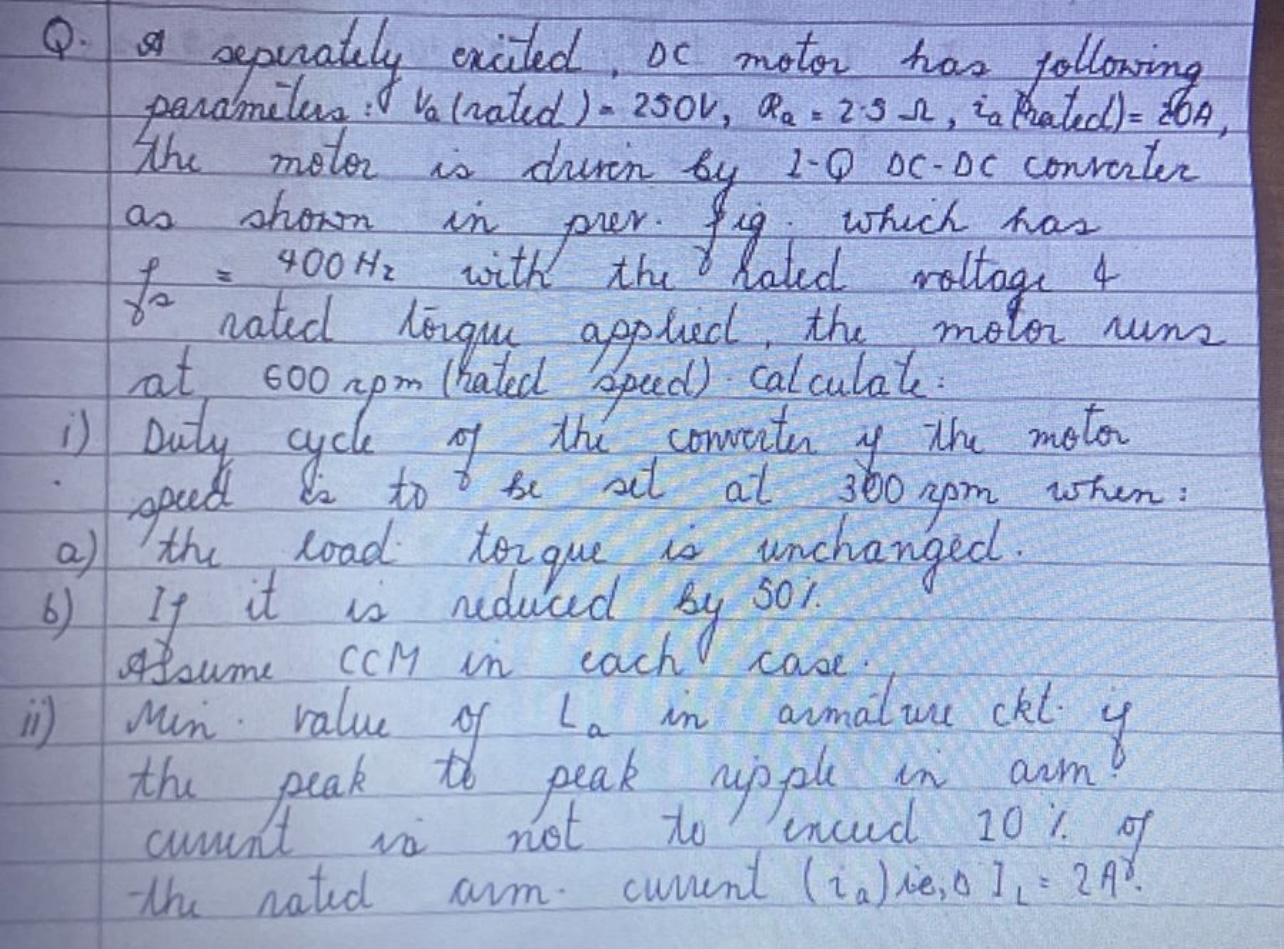 Q. A seperately excited, DC motor has following
parameters: Va (rated) = 250V, Ra = 2.5 Ω, ia (rated) = 20A,
the motor is driven by 1-Q DC-DC converter
as shown in prev. fig. which has
fs = 400 Hz with the rated voltage &
rated torque applied, the motor runs
at 600 rpm (rated speed). Calculate:
i) Duty cycle of the converter if the motor
speed is to be set at 300 rpm when:
a) the load torque is unchanged.
b) If it is reduced by 50%.
Assume CCM in each case.
ii) Min. value of La in armature ckt. if
the peak to peak ripple in arm.
current is not to exceed 10% of
the rated arm. current (ia) ie, Δ IL = 2A.